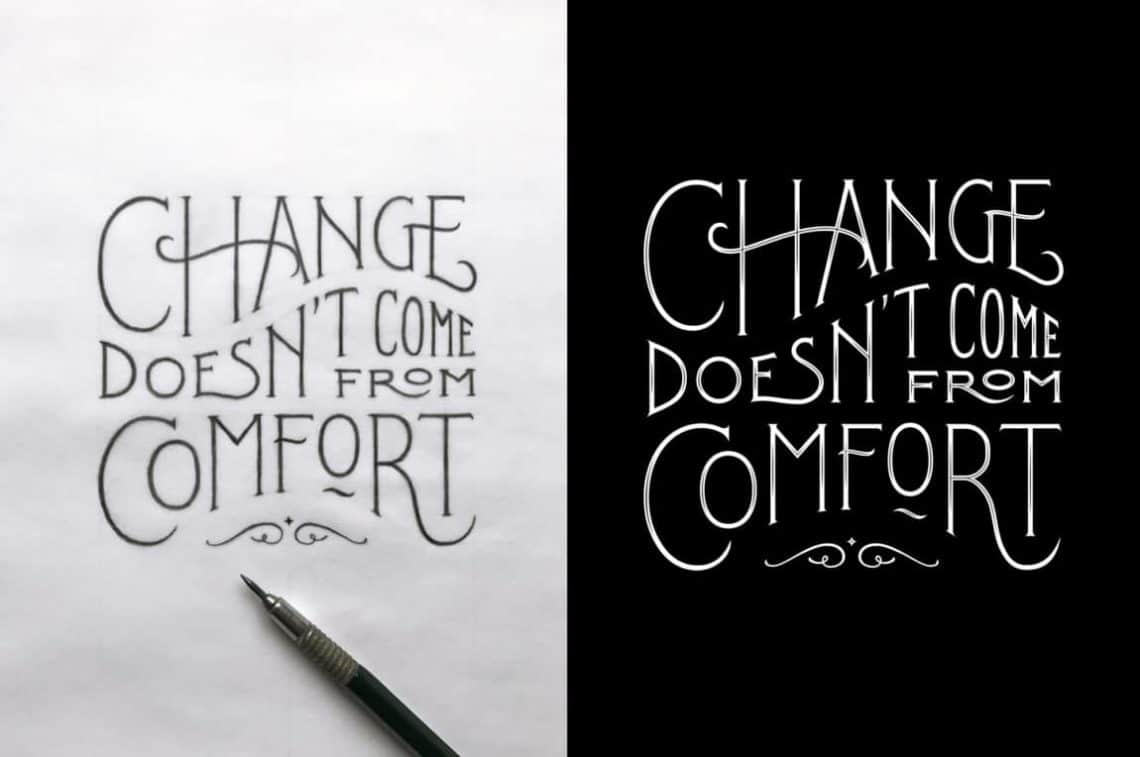 CHANGE
DOESN'T COME
FROM
COMFORT
CHANGE
DOESN'T COME
FROM
COMFORT